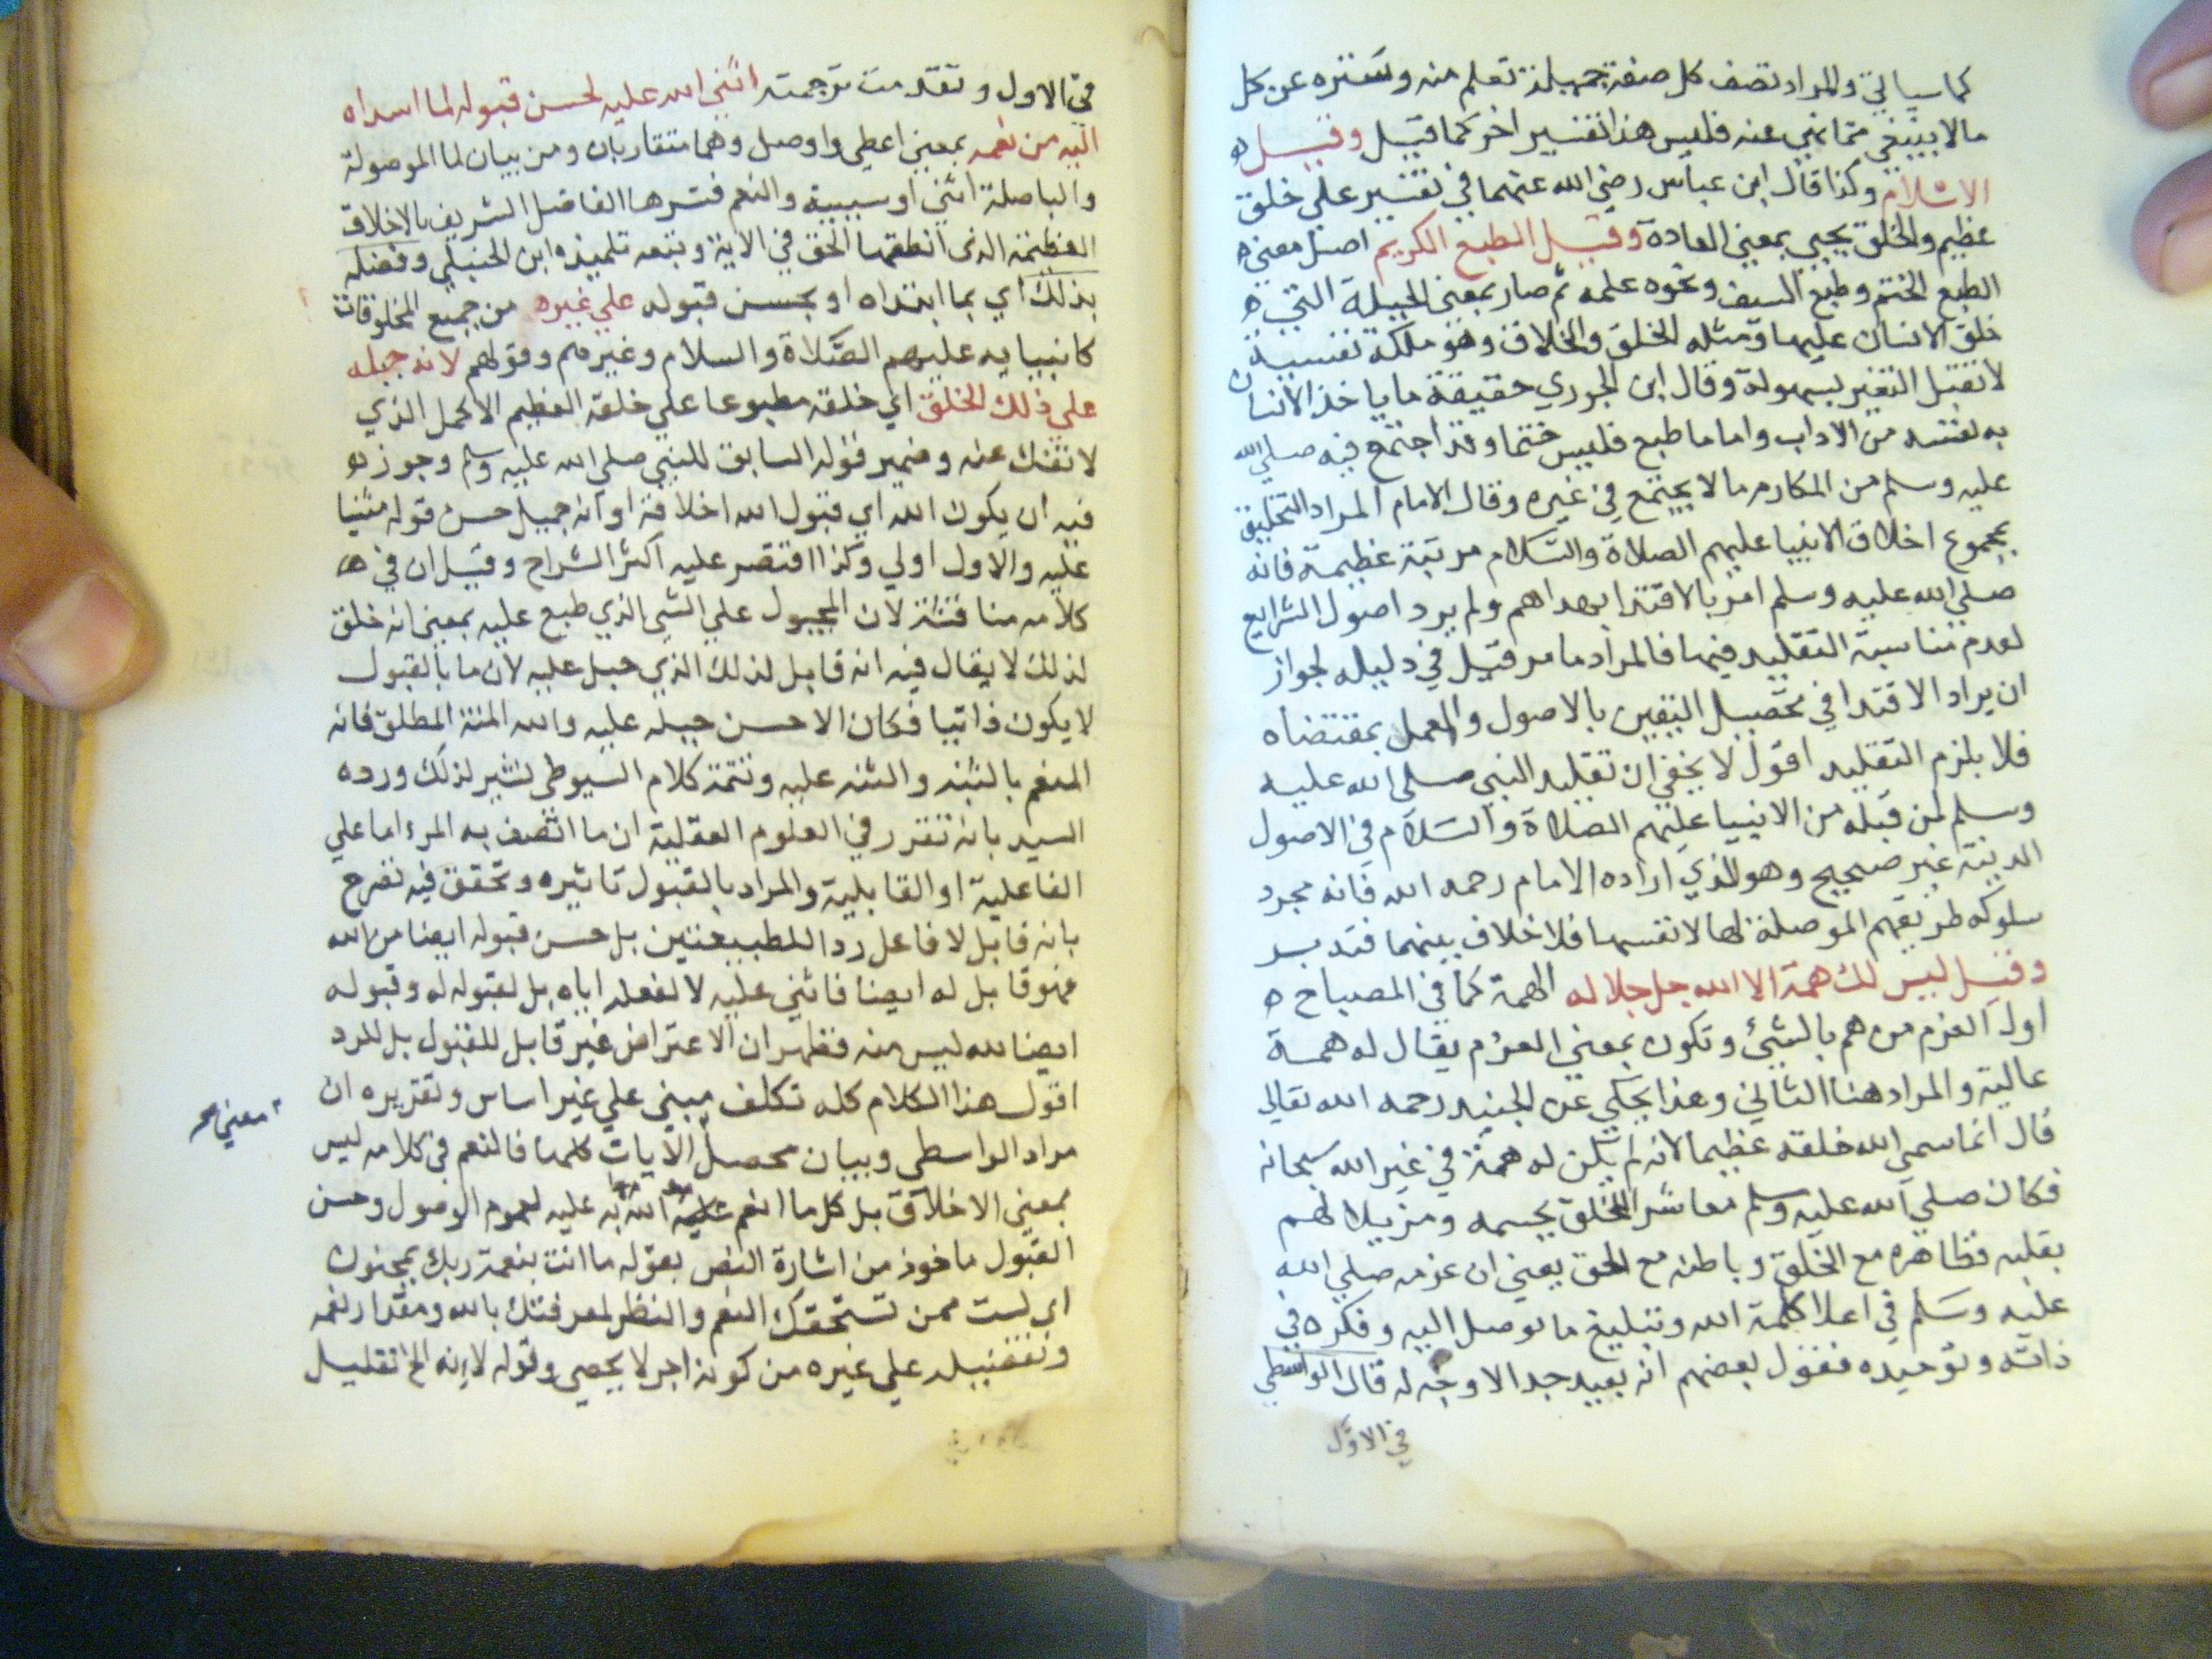 كما سياتي والمراد تصف كل صفة جميلة تعلم منه وتتنزه عن كل
مالا ينبغي مما نهي عنه فليس هذا تفسير اخر كما قيل وقيل
الاسلام وكذا قال ابن عباس رضي الله عنهما في تفسير علي خلق
عظيم والخلق يجيى بمعني العادة وقيل الطبع الكريم اصل معني
الطبع الختم وطبع السيف ونحوه علمه ثم صار بمعني الجبلة التي
خلق الانسان عليها ومثله الخلق والخلاق وهو ملكة نفسية
لا تقبل التغير بسهولة وقال ابن الجوزي حقيقة ما ياخذ الانسان
به نفسه من الاداب واما ما طبع فليس ختما وقد اجتمع فيه صلي الله
عليه وسلم من المكارم مالا يجتمع في غيره وقال الامام المراد التخليق
بمجموع اخلاق الانبيا عليهم الصلاة والسلام مرتبة عظيمة فانه
صلي الله عليه وسلم امر بالاقتدا بهداهم ولم يرد اصول الشرايع
لعدم مناسبة التقليد فيها فالمراد ما مر قيل في دليله لجواز
ان يراد الاقتدا في تحصيل اليقين بالاصول والعمل بمقتضاه
فلا يلزم التقليد اقول لا يخفي ان تقليد النبي صلي الله عليه
وسلم لمن قبله من الانبيا عليهم الصلاة والسلام في الاصول
الدينية غير صحيح وهو الذي اراده الامام رحمه الله فانه مجرد
سلوكه طريقهم الموصلة لها لا نفسها فلا خلاف بينهما فتدبر
وقيل ليس لك همة الا الله جل جلاله الهمة كما في المصباح
اول العزم من هم بالشئ وتكون بمعني العزم يقال له همة
عالية والمراد هنا الثاني وهذا يحكي عن الجنيد رحمه الله تعالي
قال انما سمي الله خلقه عظيما لانه لم يكن له همة في غير الله سبحانه
فكان صلي الله عليه وسلم معاشر الخلق بجسمه ومزيلا لهم
بقلبه فظاهره مع الخلق وباطنه مع الحق يعني ان عزمه صلي الله
عليه وسلم في اعلا كلمة الله وتبليغ ما توصل اليه وفكره في
ذاته وتوحيده فقول بعضهم انه بعيد جدا لا وجه له قال الواسطي
في الاول
في الاول وتقدمت ترجمته اثني الله عليه لحسن قبوله لما اسداه
اليه من نعمه بمعني اعطي واوصل وهما متقاربان ومن بيان لما الموصولة
والبا صلة اثني او سببية والنعم فسرها الفاضل الشريف بالاخلاق
العظيمة الذي انطقها الحق في الاية وتبعه تلميذه ابن الحنبلي وفضله
بذلك اي بما ابتداه او بحسن قبوله علي غيره من جميع المخلوقات
كانبيايه عليهم الصلاة والسلام وغيرهم وقولهم لانه جبله
علي ذلك الخلق اي خلقه مطبوعا علي خلقه العظيم الاكمل الذي
لا تنفك عنه وضمير قوله السابق للنبي صلي الله عليه وسلم وجوز
فيه ان يكون الله اي قبول الله اخلاقه او انه جميل حسن قوله مثنيا
عليه والاول اولي وكذا اقتصر عليه اكثر الشراح وقيل ان في
كلامه مناقشة لان المجبول علي الشي الذي طبع عليه بمعني انه خلق
لذلك لا يقال فيه انه قابل لذلك الذي جبل عليه لان ما بالقبول
لا يكون ذاتيا فكان الاحسن جبله عليه والله المنة المطلق فانه
المنعم بالنبذ والثنه عليه وتتمة كلام السيوطي تشير لذلك ورده
السيد بانه تقرر في العلوم العقلية ان ما اتصف به المرء اما علي
الفاعلية او القابلية والمراد بالقبول تاثيره وتحقق فيه فصرح
بانه قابل لا فاعل ردا للطبيعتين بل حسن قبوله ايضا من الله
فهو قابل له ايضا فاثني عليه لا لفعله اياه بل لقبوله له وقبوله
ايضا لله ليس منه فظهر ان الاعتراض غير قابل للقبول بل للرد
اقول هذا الكلام كله تكلف مبني علي غير اساس وتقريره ان
معني
مراد الواسطي وبيان محصل الايات كلها فالنعم في كلامه ليس
بمعني الاخلاق بل كل ما انعم الله به عليه لعموم الوصول وحسن
القبول ماخوذ من اشارة النص بقوله ما انت بنعمة ربك بمجنون
اي لست ممن تستحقك النعم والنظر لمعرفتك بالله ومقدار نعمه
وتفضيله علي غيره من كونه اجر لا يحصي وقوله لانه الخ تعليل